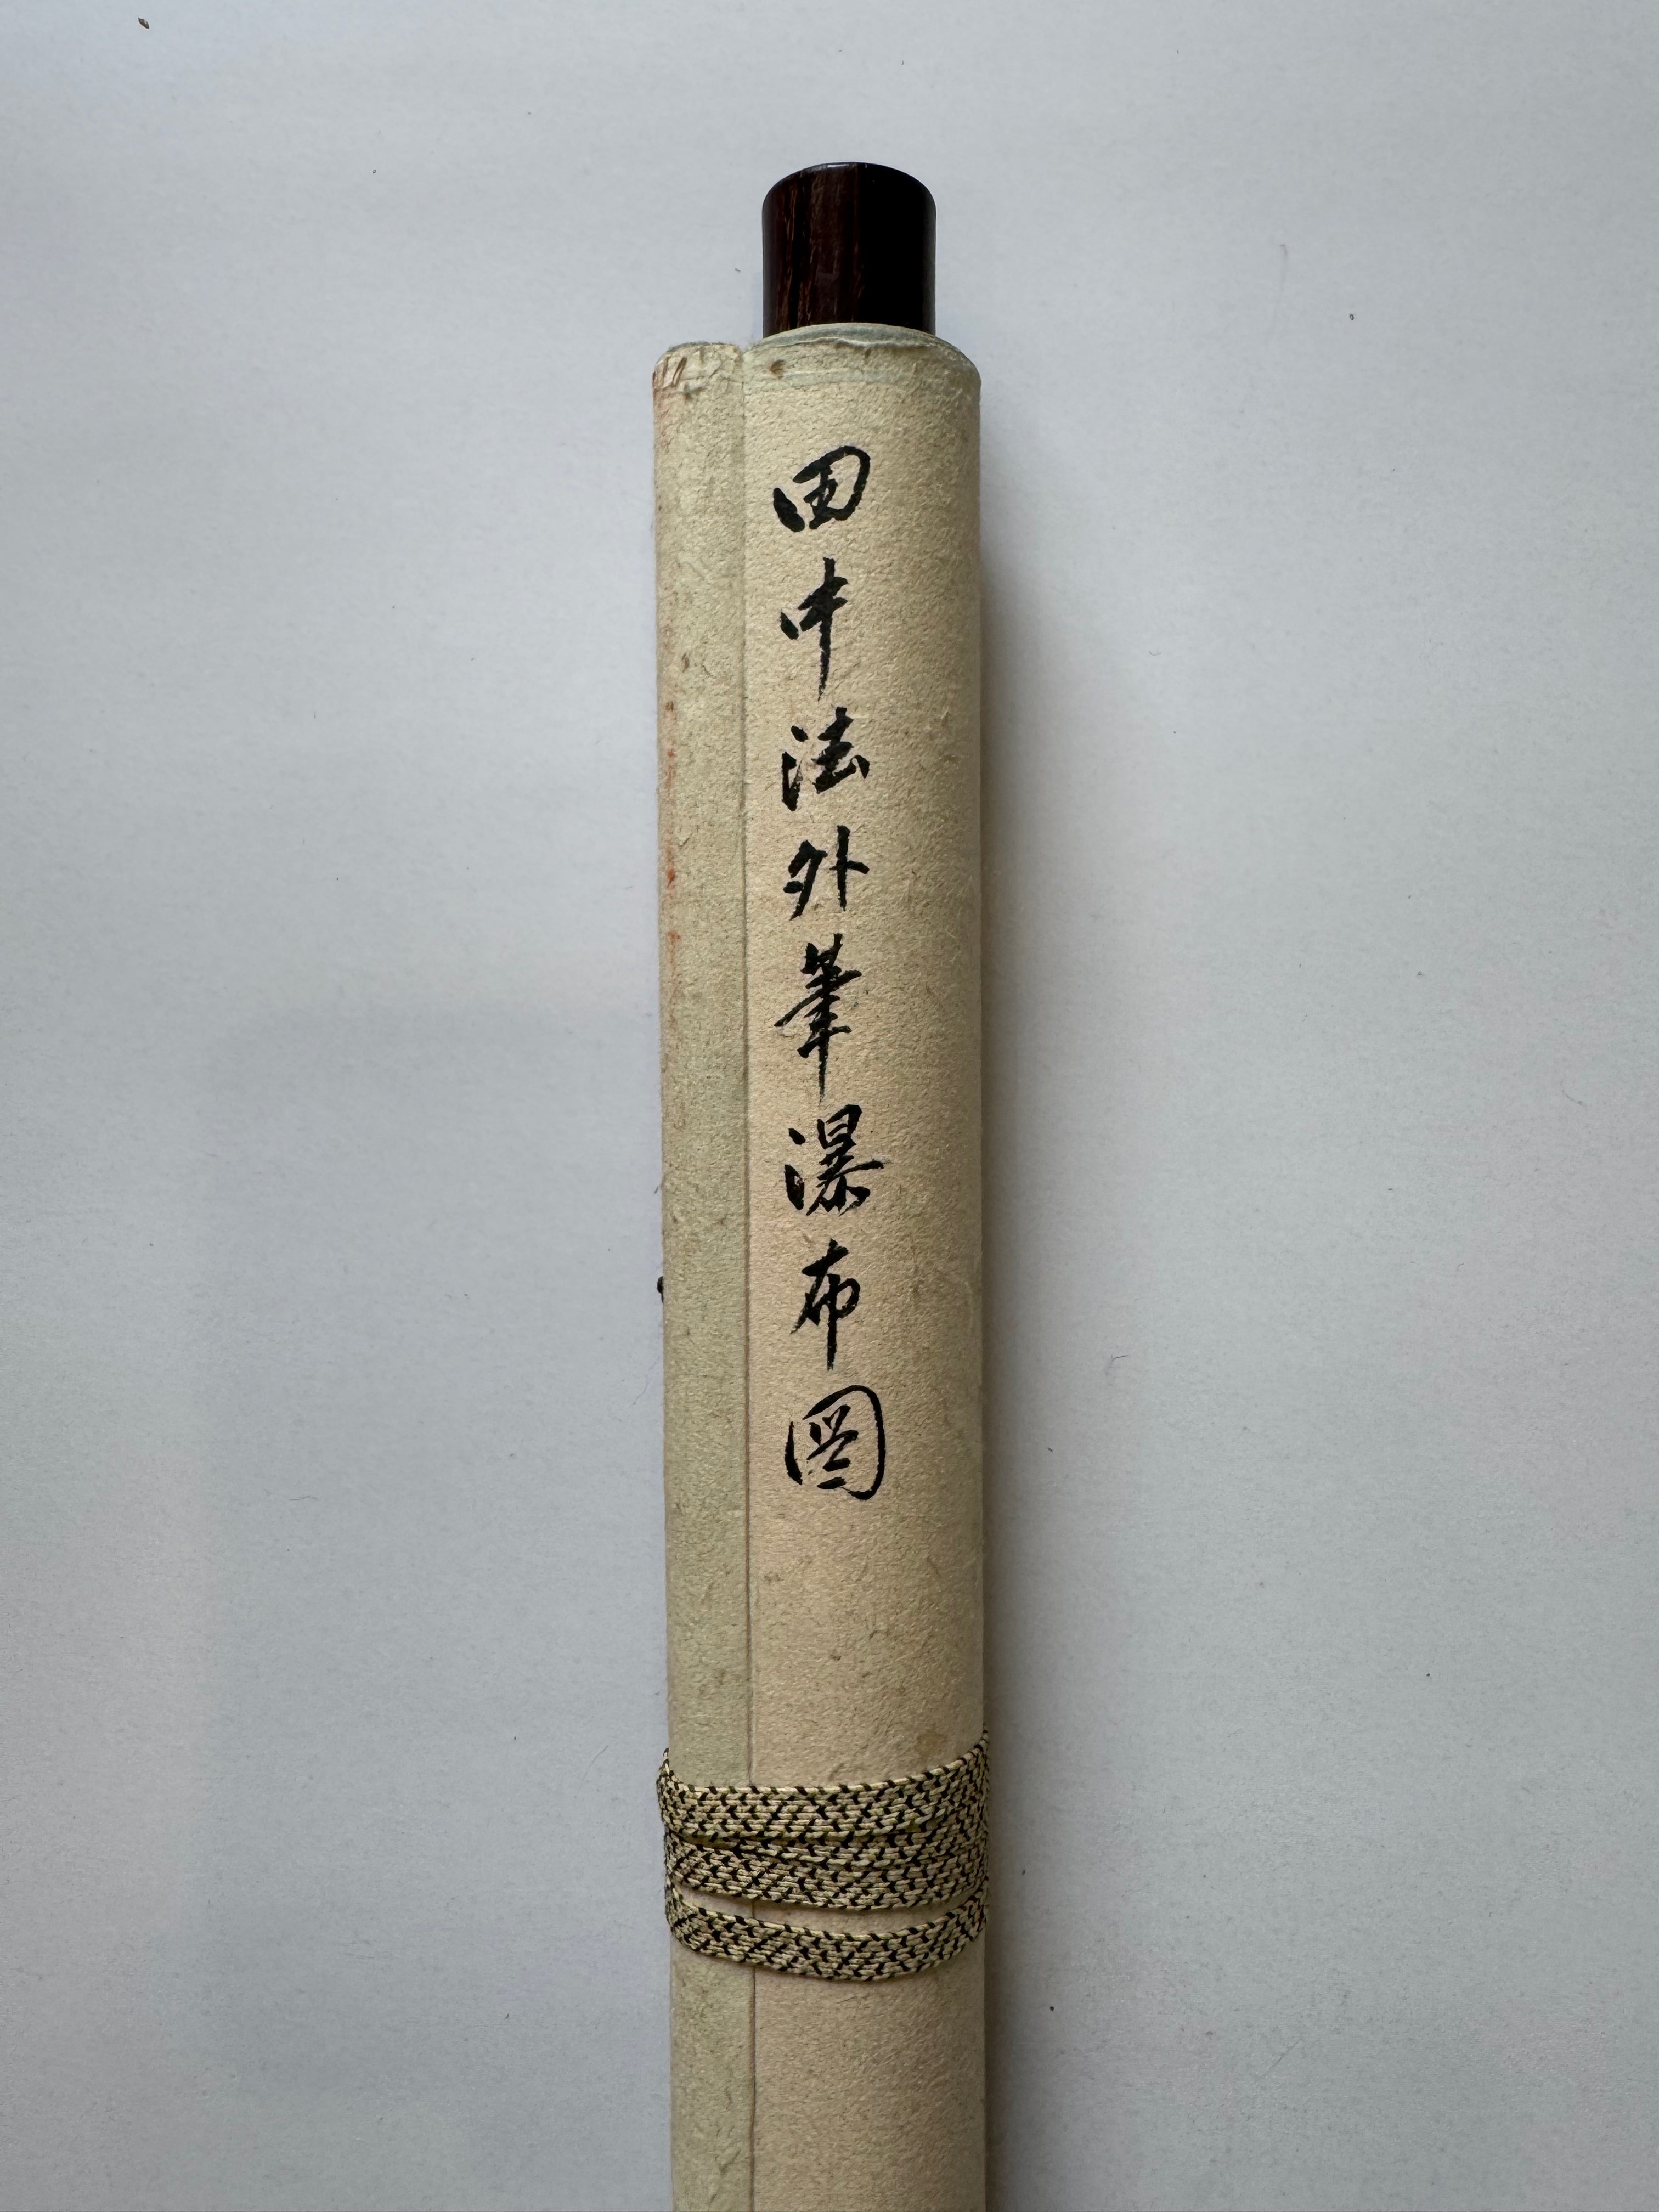 田中法外筆瀑布圖